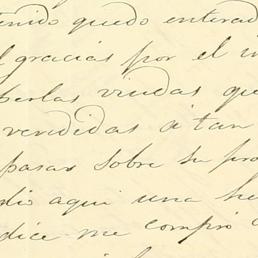 tenido quedo enterad
gracias por el in
perlas viudas que
vendidas á tan
pasar sobre su pro
dio aqui una he
dice me compró